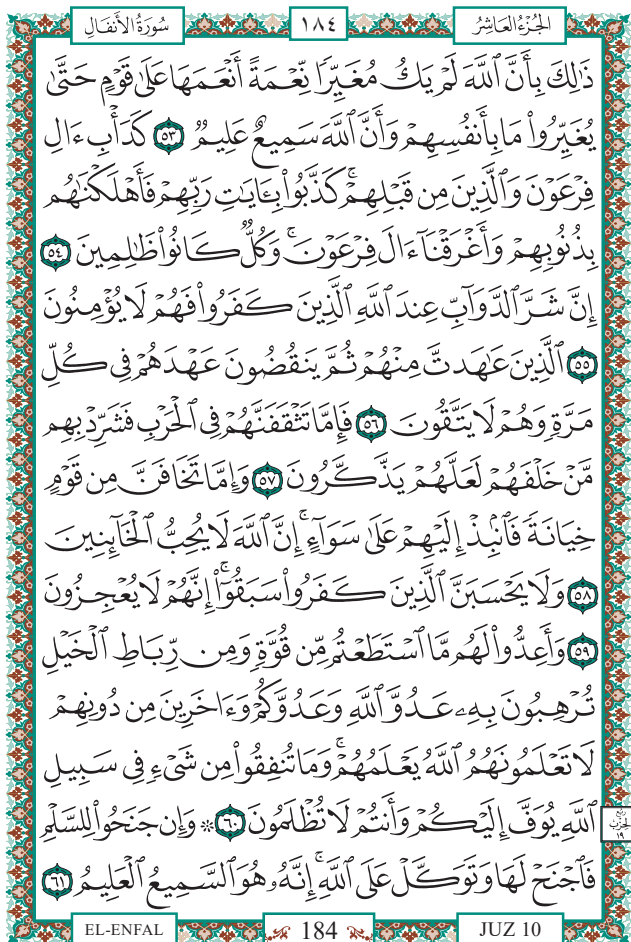 سُورَةُ الأَنفَالِ
١٨٤
الجُزْءُ العَاشِرُ
ذَٰلِكَ بِأَنَّ ٱللَّهَ لَمْ يَكُ مُغَيِّرًا نِّعْمَةً أَنْعَمَهَا عَلَىٰ قَوْمٍ حَتَّىٰ
يُغَيِّرُوا۟ مَا بِأَنفُسِهِمْ وَأَنَّ ٱللَّهَ سَمِيعٌ عَلِيمٌ ٥٣ كَدَأْبِ ءَالِ
فِرْعَوْنَ وَٱلَّذِينَ مِن قَبْلِهِمْ ۚ كَذَّبُوا۟ بِـَٔايَـٰتِ رَبِّهِمْ فَأَهْلَكْنَـٰهُم
بِذُنُوبِهِمْ وَأَغْرَقْنَآ ءَالَ فِرْعَوْنَ ۚ وَكُلٌّ كَانُوا۟ ظَـٰلِمِينَ ٥٤
إِنَّ شَرَّ ٱلدَّوَآبِّ عِندَ ٱللَّهِ ٱلَّذِينَ كَفَرُوا۟ فَهُمْ لَا يُؤْمِنُونَ
٥٥ ٱلَّذِينَ عَـٰهَدتَّ مِنْهُمْ ثُمَّ يَنقُضُونَ عَهْدَهُمْ فِى كُلِّ
مَرَّةٍ وَهُمْ لَا يَتَّقُونَ ٥٦ فَإِمَّا تَثْقَفَنَّهُمْ فِى ٱلْحَرْبِ فَشَرِّدْ بِهِم
مَّنْ خَلْفَهُمْ لَعَلَّهُمْ يَذَّكَّرُونَ ٥٧ وَإِمَّا تَخَافَنَّ مِن قَوْمٍ
خِيَانَةً فَٱنۢبِذْ إِلَيْهِمْ عَلَىٰ سَوَآءٍ ۚ إِنَّ ٱللَّهَ لَا يُحِبُّ ٱلْخَآئِنِينَ
٥٨ وَلَا يَحْسَبَنَّ ٱلَّذِينَ كَفَرُوا۟ سَبَقُوٓا۟ ۚ إِنَّهُمْ لَا يُعْجِزُونَ
٥٩ وَأَعِدُّوا۟ لَهُم مَّا ٱسْتَطَعْتُم مِّن قُوَّةٍ وَمِن رِّبَاطِ ٱلْخَيْلِ
تُرْهِبُونَ بِهِۦ عَدُوَّ ٱللَّهِ وَعَدُوَّكُمْ وَءَاخَرِينَ مِن دُونِهِمْ
لَا تَعْلَمُونَهُمُ ٱللَّهُ يَعْلَمُهُمْ ۚ وَمَا تُنفِقُوا۟ مِن شَىْءٍ فِى سَبِيلِ
ٱللَّهِ يُوَفَّ إِلَيْكُمْ وَأَنتُمْ لَا تُظْلَمُونَ ٦٠ ۞ وَإِن جَنَحُوا۟ لِلسَّلْمِ
رُبعُ الحِزْب ١٩
فَٱجْنَحْ لَهَا وَتَوَكَّلْ عَلَى ٱللَّهِ ۚ إِنَّهُۥ هُوَ ٱلسَّمِيعُ ٱلْعَلِيمُ ٦١
EL-ENFAL
184
JUZ 10